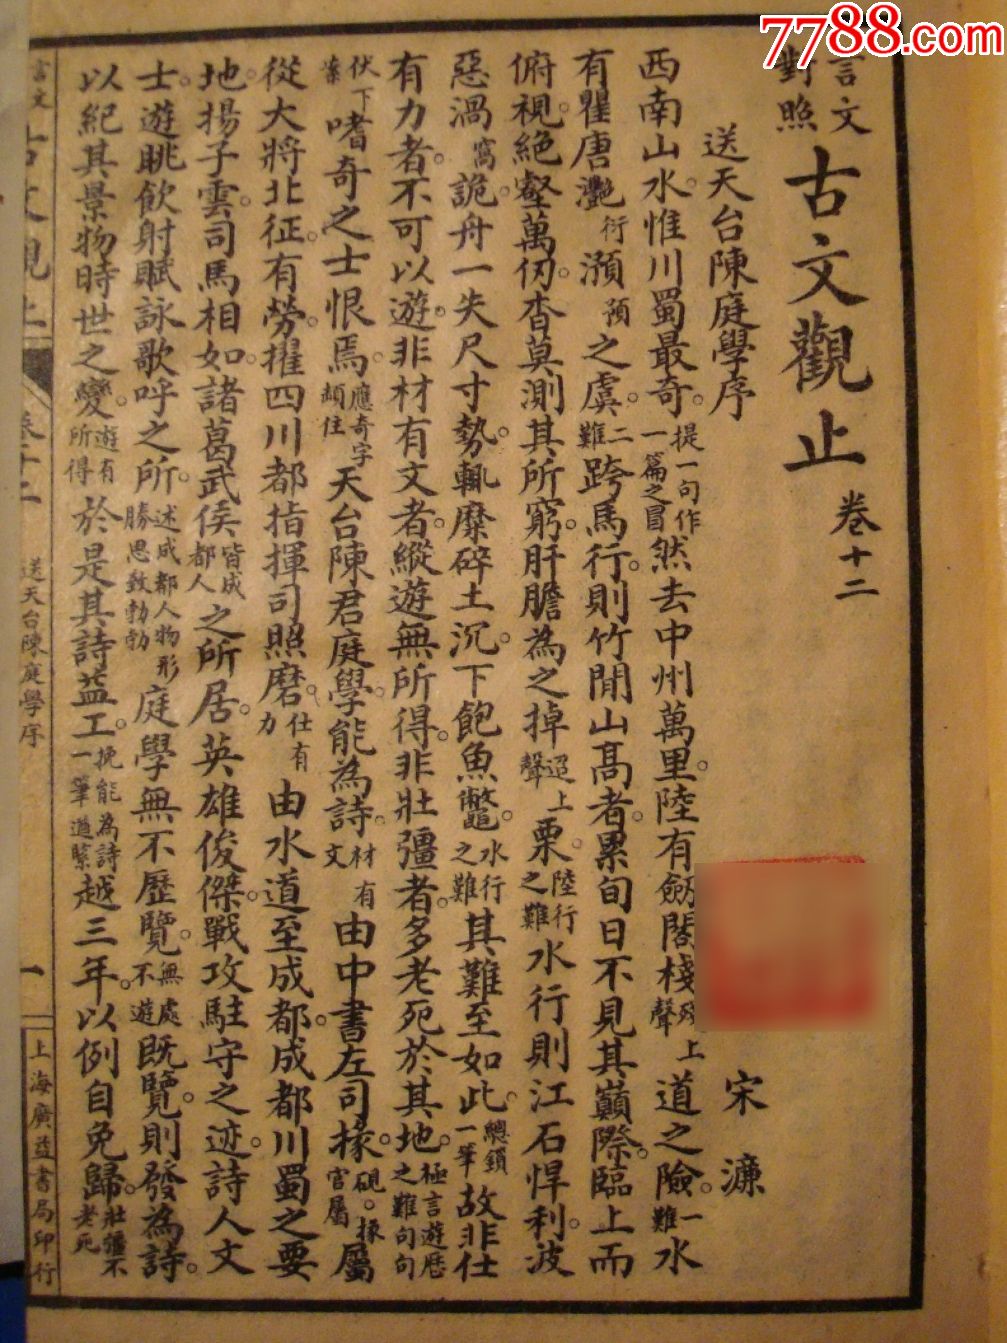 7788.com
言文對照 古文觀止 卷十二
送天台陳庭學序 宋濂
西南山水。惟川蜀最奇。提一句作一篇之冒然去中州萬里。陸有劒閣棧殘上聲道之險。一難水
有瞿唐灩衍澦預之虞。二難跨馬行。則竹閒山高者。累旬日不見其巔際。臨上而
俯視。絕壑萬仞。杳莫測其所窮。肝膽為之掉迢上聲栗。陸行之難水行則江石悍利。波
惡渦窩詭。舟一失尺寸。勢輒糜碎土沉。下飽魚鼈。水行之難其難至如此。總鎖一筆故非仕
有力者。不可以遊。非材有文者。縱遊無所得。非壯彊者。多老死於其地。極言遊歷之難句句
伏下案嗜奇之士恨焉。應奇字頓住天台陳君庭學。能為詩。有材文由中書左司掾。硯。掾官屬屬
從大將北征。有勞。擢四川都指揮司照磨。仕有力由水道至成都。成都。川蜀之要
地。揚子雲。司馬相如。諸葛武侯皆成都人之所居。英雄俊傑。戰攻駐守之迹。詩人文
士。遊眺飲射。賦詠歌呼之所。述成都人物形勝思致勃勃庭學無不歷覽。無處不遊既覽。則發為詩。
以紀其景物時世之變。遊有所得於是其詩益工。挽能為詩一筆遒緊越三年。以例自免歸。壯彊不老死
言文 古文觀止 卷十二 送天台陳庭學序 一 上海廣益書局印行